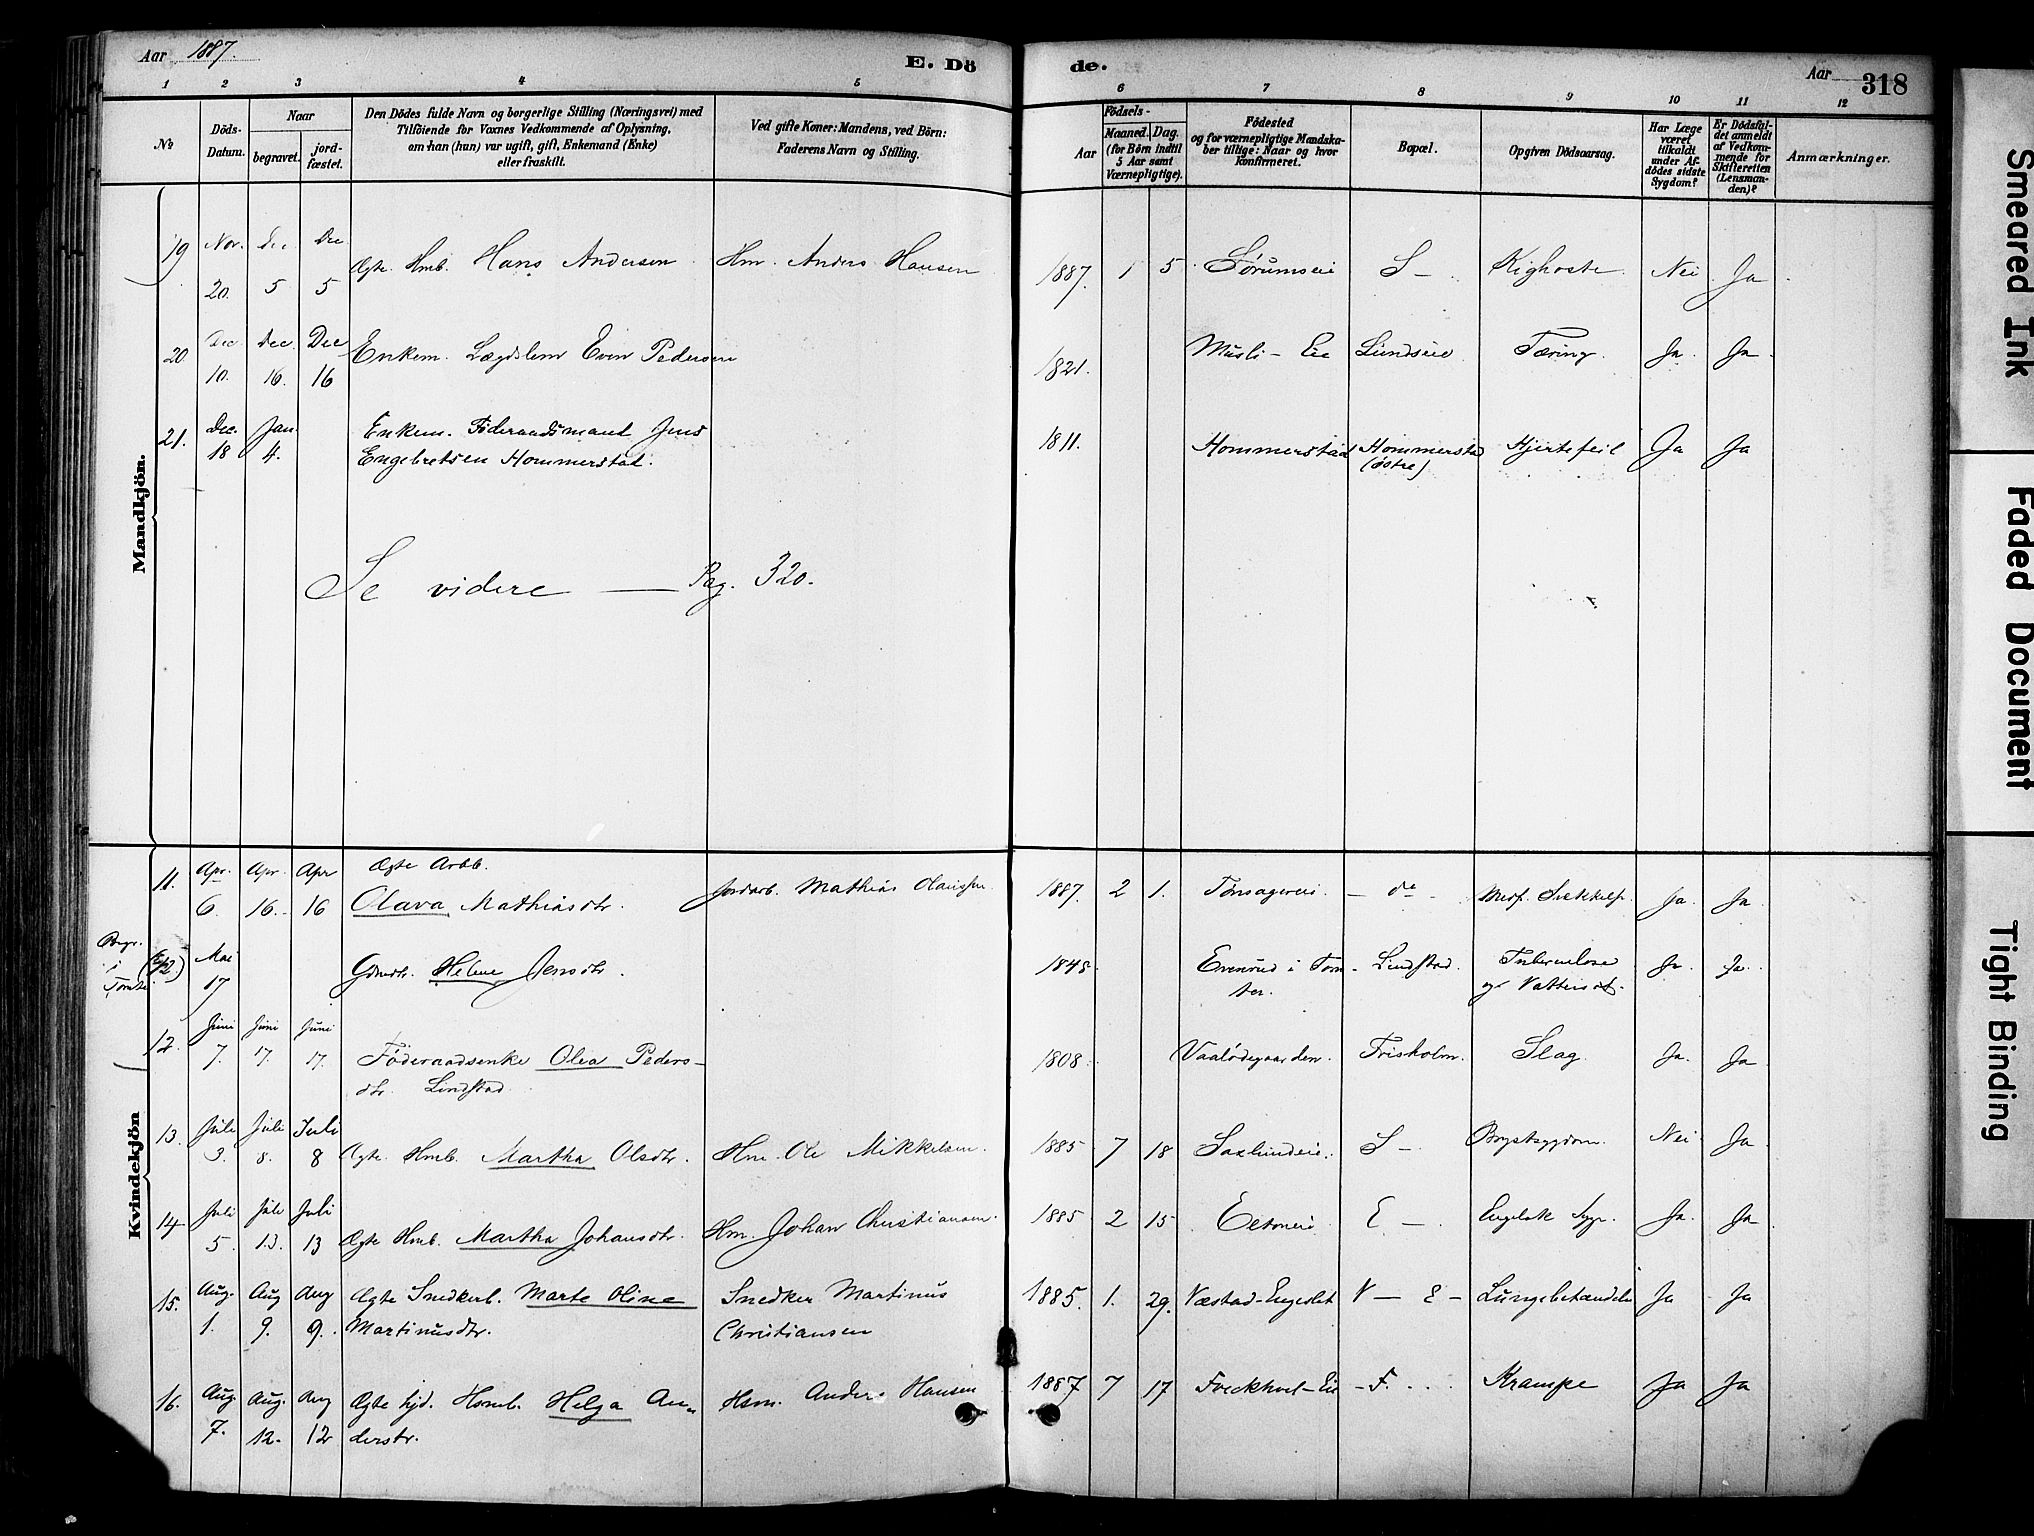 Aar 1887.
E. Dö
de.
Aar 318
1 2 3 4 5 6 7 8 9 10 11 12
No
Döds-Datum.
Naar
begravet.
jord-fæstet.
Den Dödes fulde Navn og borgerlige Stilling (Næringsvei) med
Tilföiende for Voxnes Vedkommende af Oplysning,
om han (hun) var ugift, gift, Enkemand (Enke)
eller fraskilt.
Ved gifte Koner: Mandens, ved Börn:
Faderens Navn og Stilling.
Födsels-
Aar
Maaned. Dag.
(for Börn indtil
5 Aar samt
Værnepligtige).
Födested
og for værnepligtige Mandska-
ber tillige: Naar og hvor
Konfirmeret.
Bopæl.
Opgiven Dödsaarsag.
Har Læge
været
tilkaldt
under Af-
dödes sidste
Sygdom?
Er Dödsfal-
det anmeldt
af Vedkom-
mende for
Skifteretten
(Lensman-
den)?
Anmærkninger.
Mandkjön.
19 Nov. Dec Dec
20. 5 5
Ægte Hmb. Hans Andersen Hm. Anders Hansen 1887. 1 5 Sørumseie S — Kighoste Nei Ja
20 Dec. Dec. Dec
10. 16. 16
Enkem. Lægdslem Even Pedersen 1821. Musli-Eie Lundseie Tæring. Ja Ja
21. Dec. Jan
18 4.
Enkem. Föderaadsmand Jens
Engebretsen Hommerstad.
1811. Hommerstad Hommerstad
(östre)
Hjertefeil Ja Ja
Se videre — Pag. 320.
Kvindekjön
11. Apr. Apr. Apr
6. 16. 16
Ægte Arbb.
Olava Mathiasdtr. Jordarb. Mathias Olaussen 1887. 2 1. — do Ja. Ja
Begr.
i
Mai
17
Gdmdtr. Helene Jensdtr. 1848 Evenrud i Tom-
ter.
Lindstad. Tuberculose
og Vattersot. Ja Ja.
12. Juni Juni Juni
7. 17. 17.
Föderaadsenke Olea Peders-
dtr. Lindstad
1808. Vaalödegaarden. Frisholm. Slag Ja. Ja
13. Juli Juli Juli
3. 8. 8
Ægte Hmb. Martha Olsdtr. Hm. Ole Mikkelsen. 1885 7 18 Saxlundeie. S — Brystsygdom. Nei Ja
14 Juli Juli Juli
5. 13. 13
Ægte Hmb. Martha Johansdtr. Hm. Johan Christiansen. 1885 2 15 E — Engelsk Syge. Ja. Ja
15. Aug. Aug Aug
1. 9. 9.
Ægte Snedkerb. Marte Oline
Martinusdtr.
Snedker Martinus
Christiansen
1885. 1. 29. Væstad-Engeslet V — E — Lungebetændelse Ja Ja
16. Aug. Aug. Aug
7. 12. 12
Ægte tjd. Hsmb. Helga An-
derstr.
Hsm. Anders Hansen 1887 7 17 — F. Krampe Ja Ja
Smeared Ink
Faded Document
Tight Binding